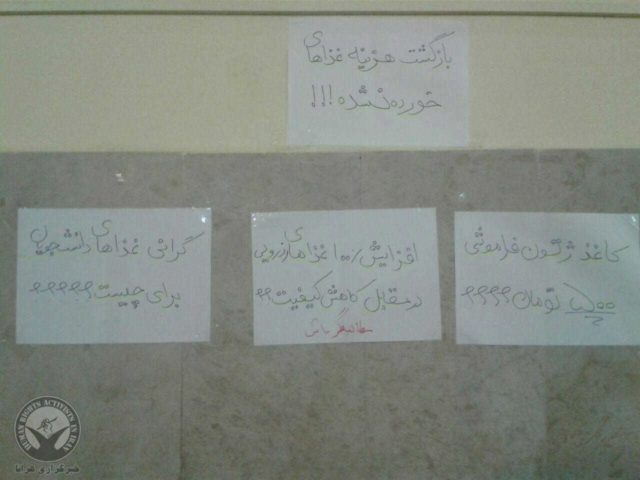 بازگشت هزینه غذاهای
خورده نشده!!!
کاغذ ژتون فراموشی
۵۰۰ تومان؟؟؟؟
افزایش ۱۰۰٪ غذاهای رزروی
در مقابل کاهش کیفیت؟؟
مطالبه‌گر باش
گرانی غذاهای دانشجویان
برای چیست؟؟؟؟؟
HUMAN RIGHTS ACTIVISTS IN IRAN
خبرگزاری هرانا